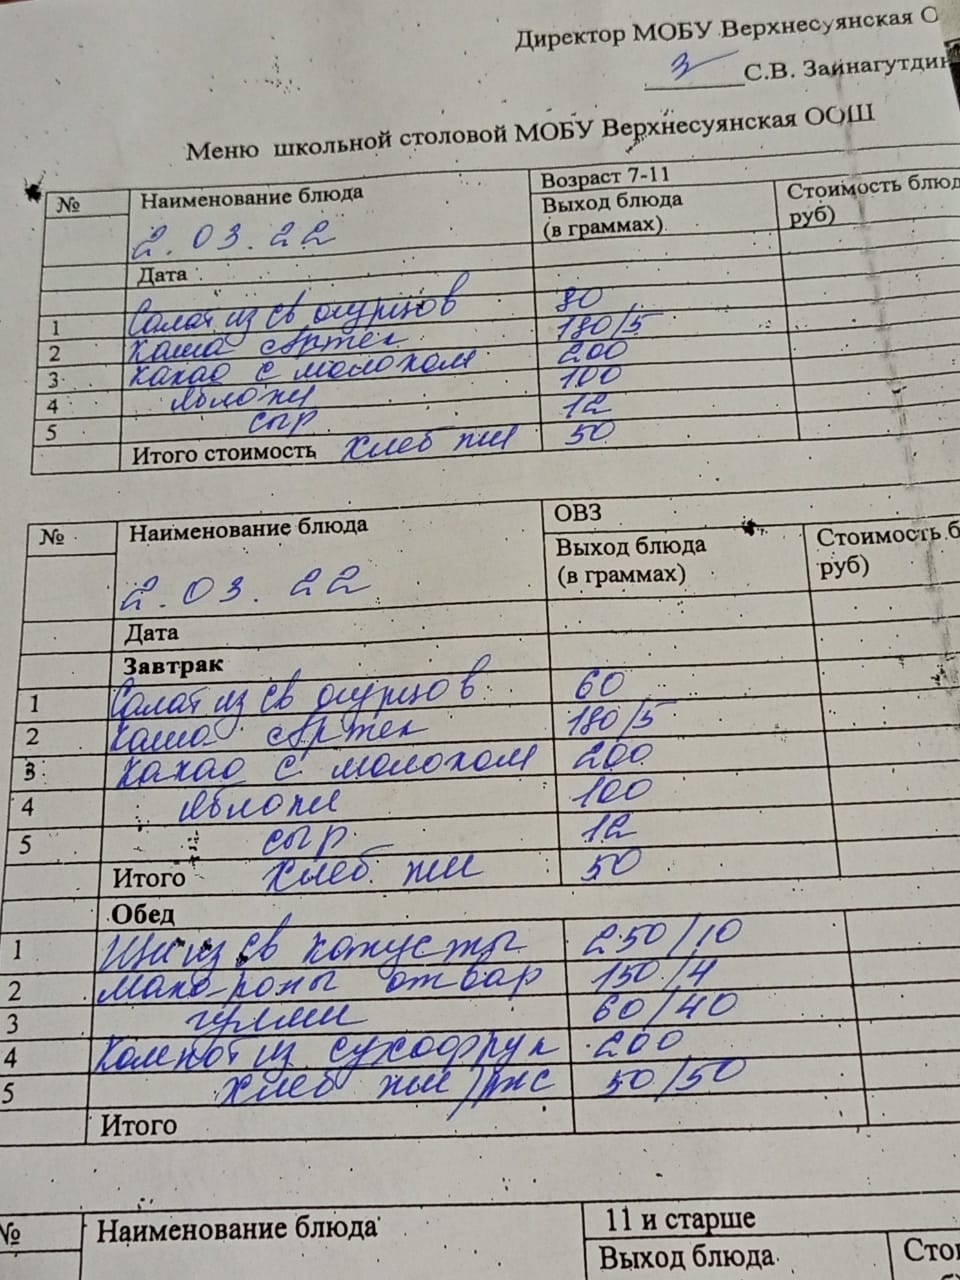 Директор МОБУ Верхнесуянская О
С.В. Зайнагутдин
Меню школьной столовой МОБУ Верхнесуянская ООШ
№ Наименование блюда Возраст 7-11
Выход блюда (в граммах) Стоимость блюд руб)
2.03.22
Дата
Салат из св огурцов 80
1 Каша Артек 180/5
2 Какао с молоком 200
3 яблоки 100
4 сыр 12
5 Итого стоимость Хлеб пш 50
№ Наименование блюда ОВЗ
Выход блюда (в граммах) Стоимость б руб)
2.03.22
Дата
Завтрак
1 Салат из св огурцов 60
2 Каша Артек 180/5
3 Какао с молоком 200
4 яблоки 100
5 сыр 12
Итого Хлеб пш 50
Обед
1 Щи из св капусты 250/10
2 Макароны отвар 150/4
3 гуляш 60/40
4 Компот из сухофрук 200
5 Хлеб пш/рж 50/50
Итого
№ Наименование блюда 11 и старше
Выход блюда Стои